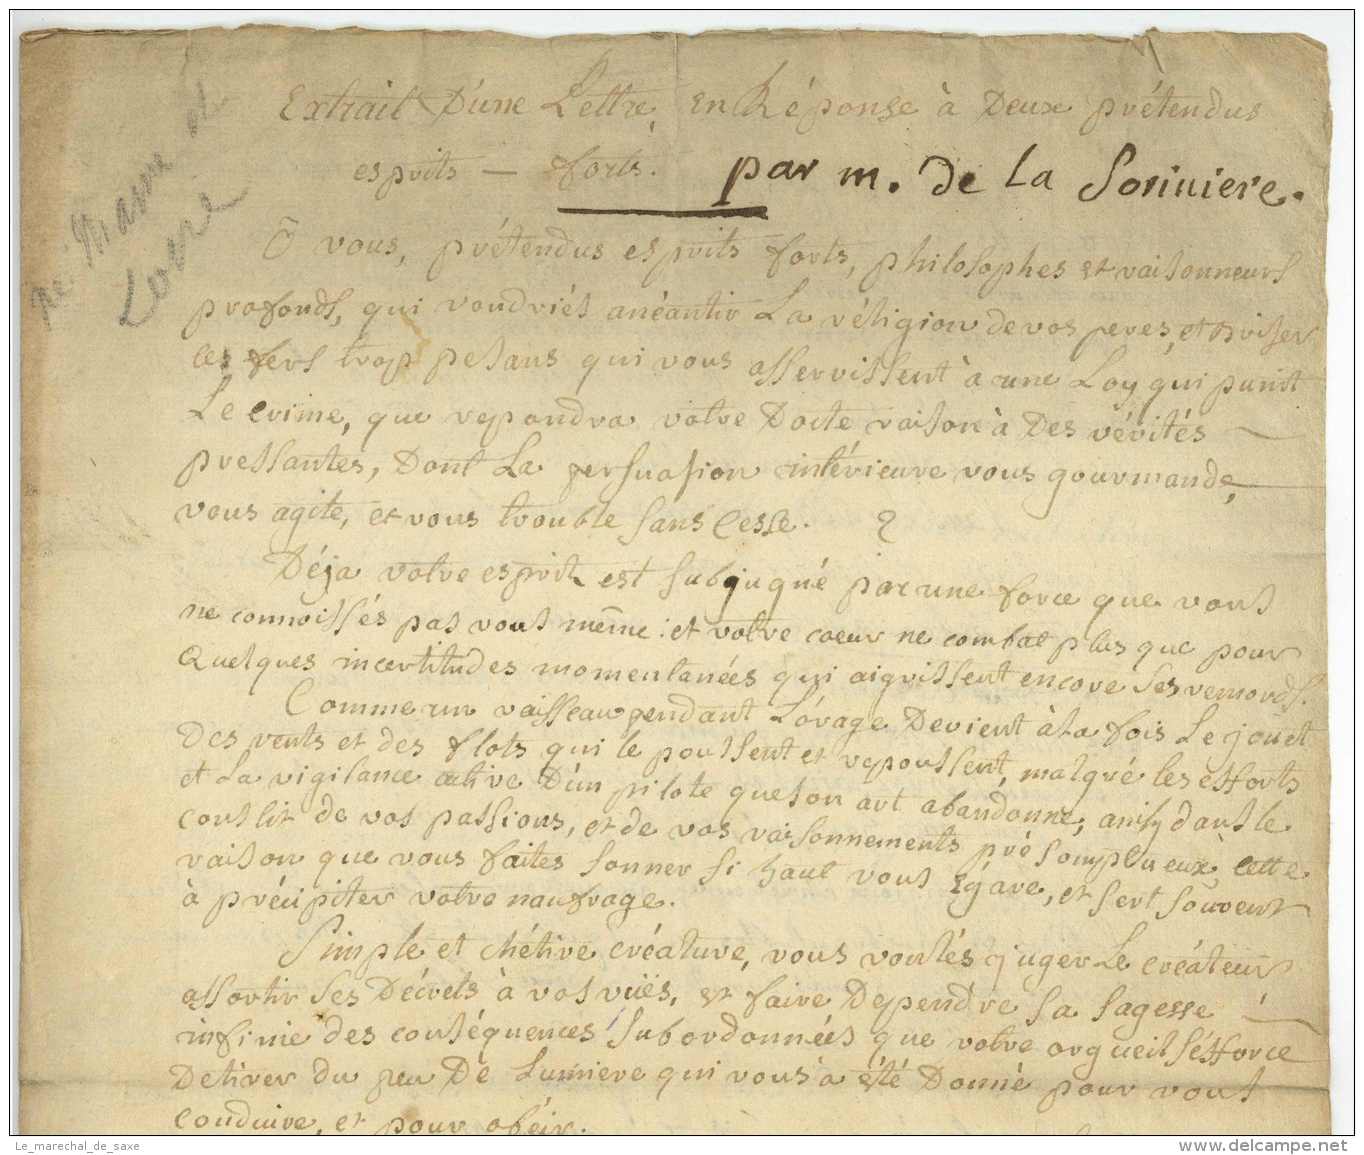 Extrait D'une Lettre, en Réponse à Deux prétendus
esprits — forts. par m. de la Soriniere.
Ô vous, prétendus esprits forts, philosophes et raisonneurs
profonds, qui voudriés anéantir La réligion de vos peres, et briser
les fers trop pesans qui vous asservissent à une Loy qui punit
Le crime, que repondra votre Docte raison à Des vérités
pressantes, Dont La persuasion intérieure vous gourmande,
vous agite, et vous trouble sans Cesse. ?
Déja votre esprit est subjugué par une force que vous
ne connoissés pas vous même : et votre coeur ne combat plus que pour
quelques incertitudes momentanées qui aigrissent encore ses remords.
Comme un vaisseau pendant L'orage Devient à la fois Le jouet
Des vents et des flots qui le poussent et repoussent, malgré les efforts
et La vigilance active D'un pilote que son art abandonne, ainsy dans le
conflit de vos passions, et de vos raisonnements présomptueux cette
raison que vous faites sonner si haut vous Egare, et sert souvent
à précipiter votre naufrage.
Simple et chétive créature, vous voulés juger Le créateur
assortir ses Décrets à vos vuës, et faire Dependre sa sagesse
infinie des conséquences subordonnées que votre orgueil s'éfforce
De tirer du peu De Lumiere qui vous a été Donné pour vous
conduire, et pour obéir.
Maine et
Loire
Le_marechal_de_saxe
delcampe.net